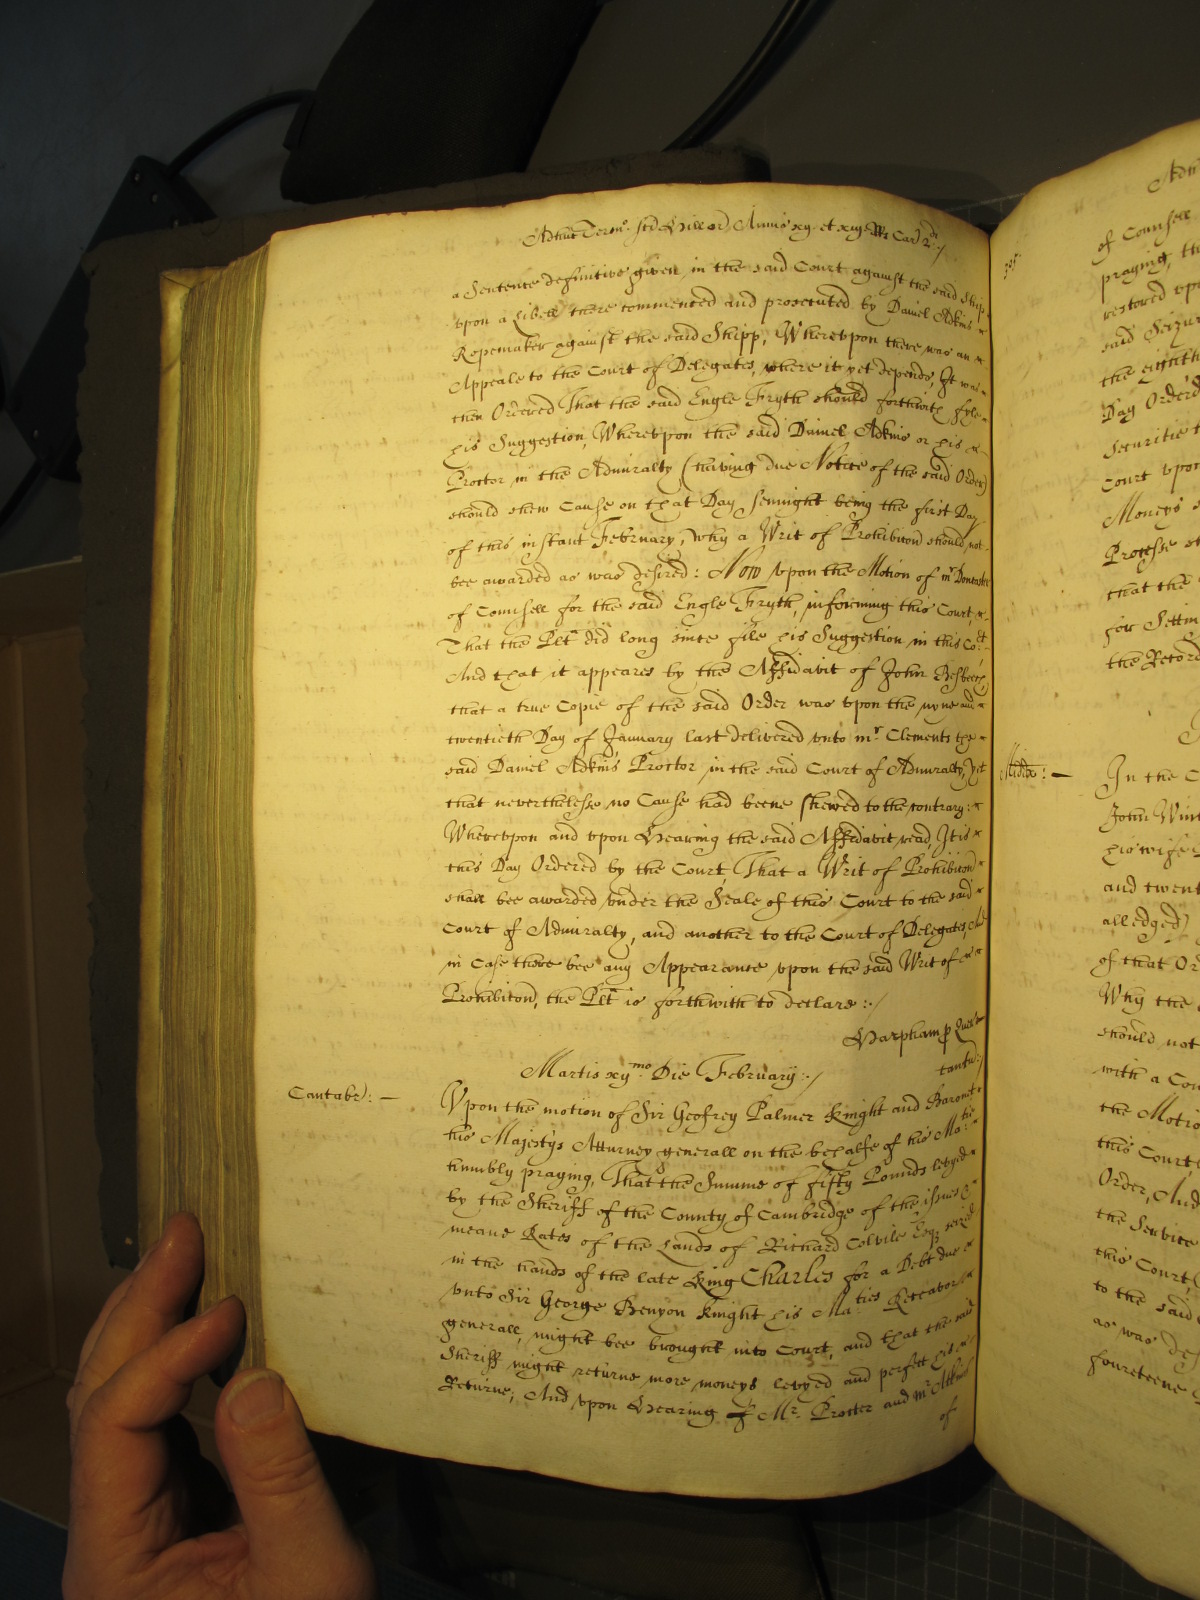 Adhuc Termi: scti Hillar Annis xv et xvj Rs Car 2di:/
a Sentence definitive given in the said Court against the said Ship
vpon a Libell there commenced and prosecuted by Daniel Adkins
Ropemaker against the said Shipp, Wherevpon there was an
Appeale to the Court of Delegates, where it yet depends, It was
then Ordered That the said Engle Fryth should forthwith fyle
his Suggestion, Wherevpon the said Daniel Adkins or his
Proctor in the Admiralty (having due Notice of the said Order)
should shew Cause on that Day sennight being the first Day
of this instant February, why a Writ of Prohibicon should not
bee awarded as was desired: Now vpon the Motion of mr Doncaster
of Counsell for the said Engle Fryth, informing this Court,
That the Plt did long since file his Suggestion in this Cort
And that it appeares by the Affidavit of John
that a true Copie of the said Order was vpon the nyne and
twentieth Day of January last delivered vnto mr Clements the
said Daniel Adkins Proctor in the said Court of Admiralty, yet
that neverthelesse no Cause had beene shewed to the contrary:
Wherevpon and vpon Hearing the said Affidavit read, It is
this Day Ordered by the Court, That a Writ of Prohibicon
shall bee awarded vnder the Seale of this Court to the said
Court of Admiralty, and another to the Court of Delegates, And
in Case there bee any Appearance vpon the said Writ of
Prohibicon, the Plt is forthwith to declare :/
Harpham p Quer
tantu:/
Martis xvjmo Die February:/
Cantabr: —
Vpon the motion of Sir Geofrey Palmer Knight and Baronet
his Majestys Atturney generall on the behalfe of his Matie
humbly praying, That the Summe of fifty Pounds levyed
by the Sheriff of the County of Cambridge of the issues &
meane Rates of the Lands of Richard Colvile Esq; seized
in the hands of the late King Charles for a Debt due
vnto Sir George Benyon Knight his Maties Receavor
generall, might bee brought into Court, and that the said
Sheriff might returne more moneys levyed and perfect his
Returne; And vpon Hearing of Mr. Procter and mr Atkins
of
305:
of Counsell
praying, th
restored vpo
said Seizur
the eighth
Day Ordered
Securities
Court vpon
Moneys
Processe
that the
for Settin
the Record
Midd: —
In the C
John Win
his wife
and twent
alledged)
of that Or
Why the
should not
with a Con
the Motio
this Court
Order, And
the Service
this Court
to the said
as was des
fourteene